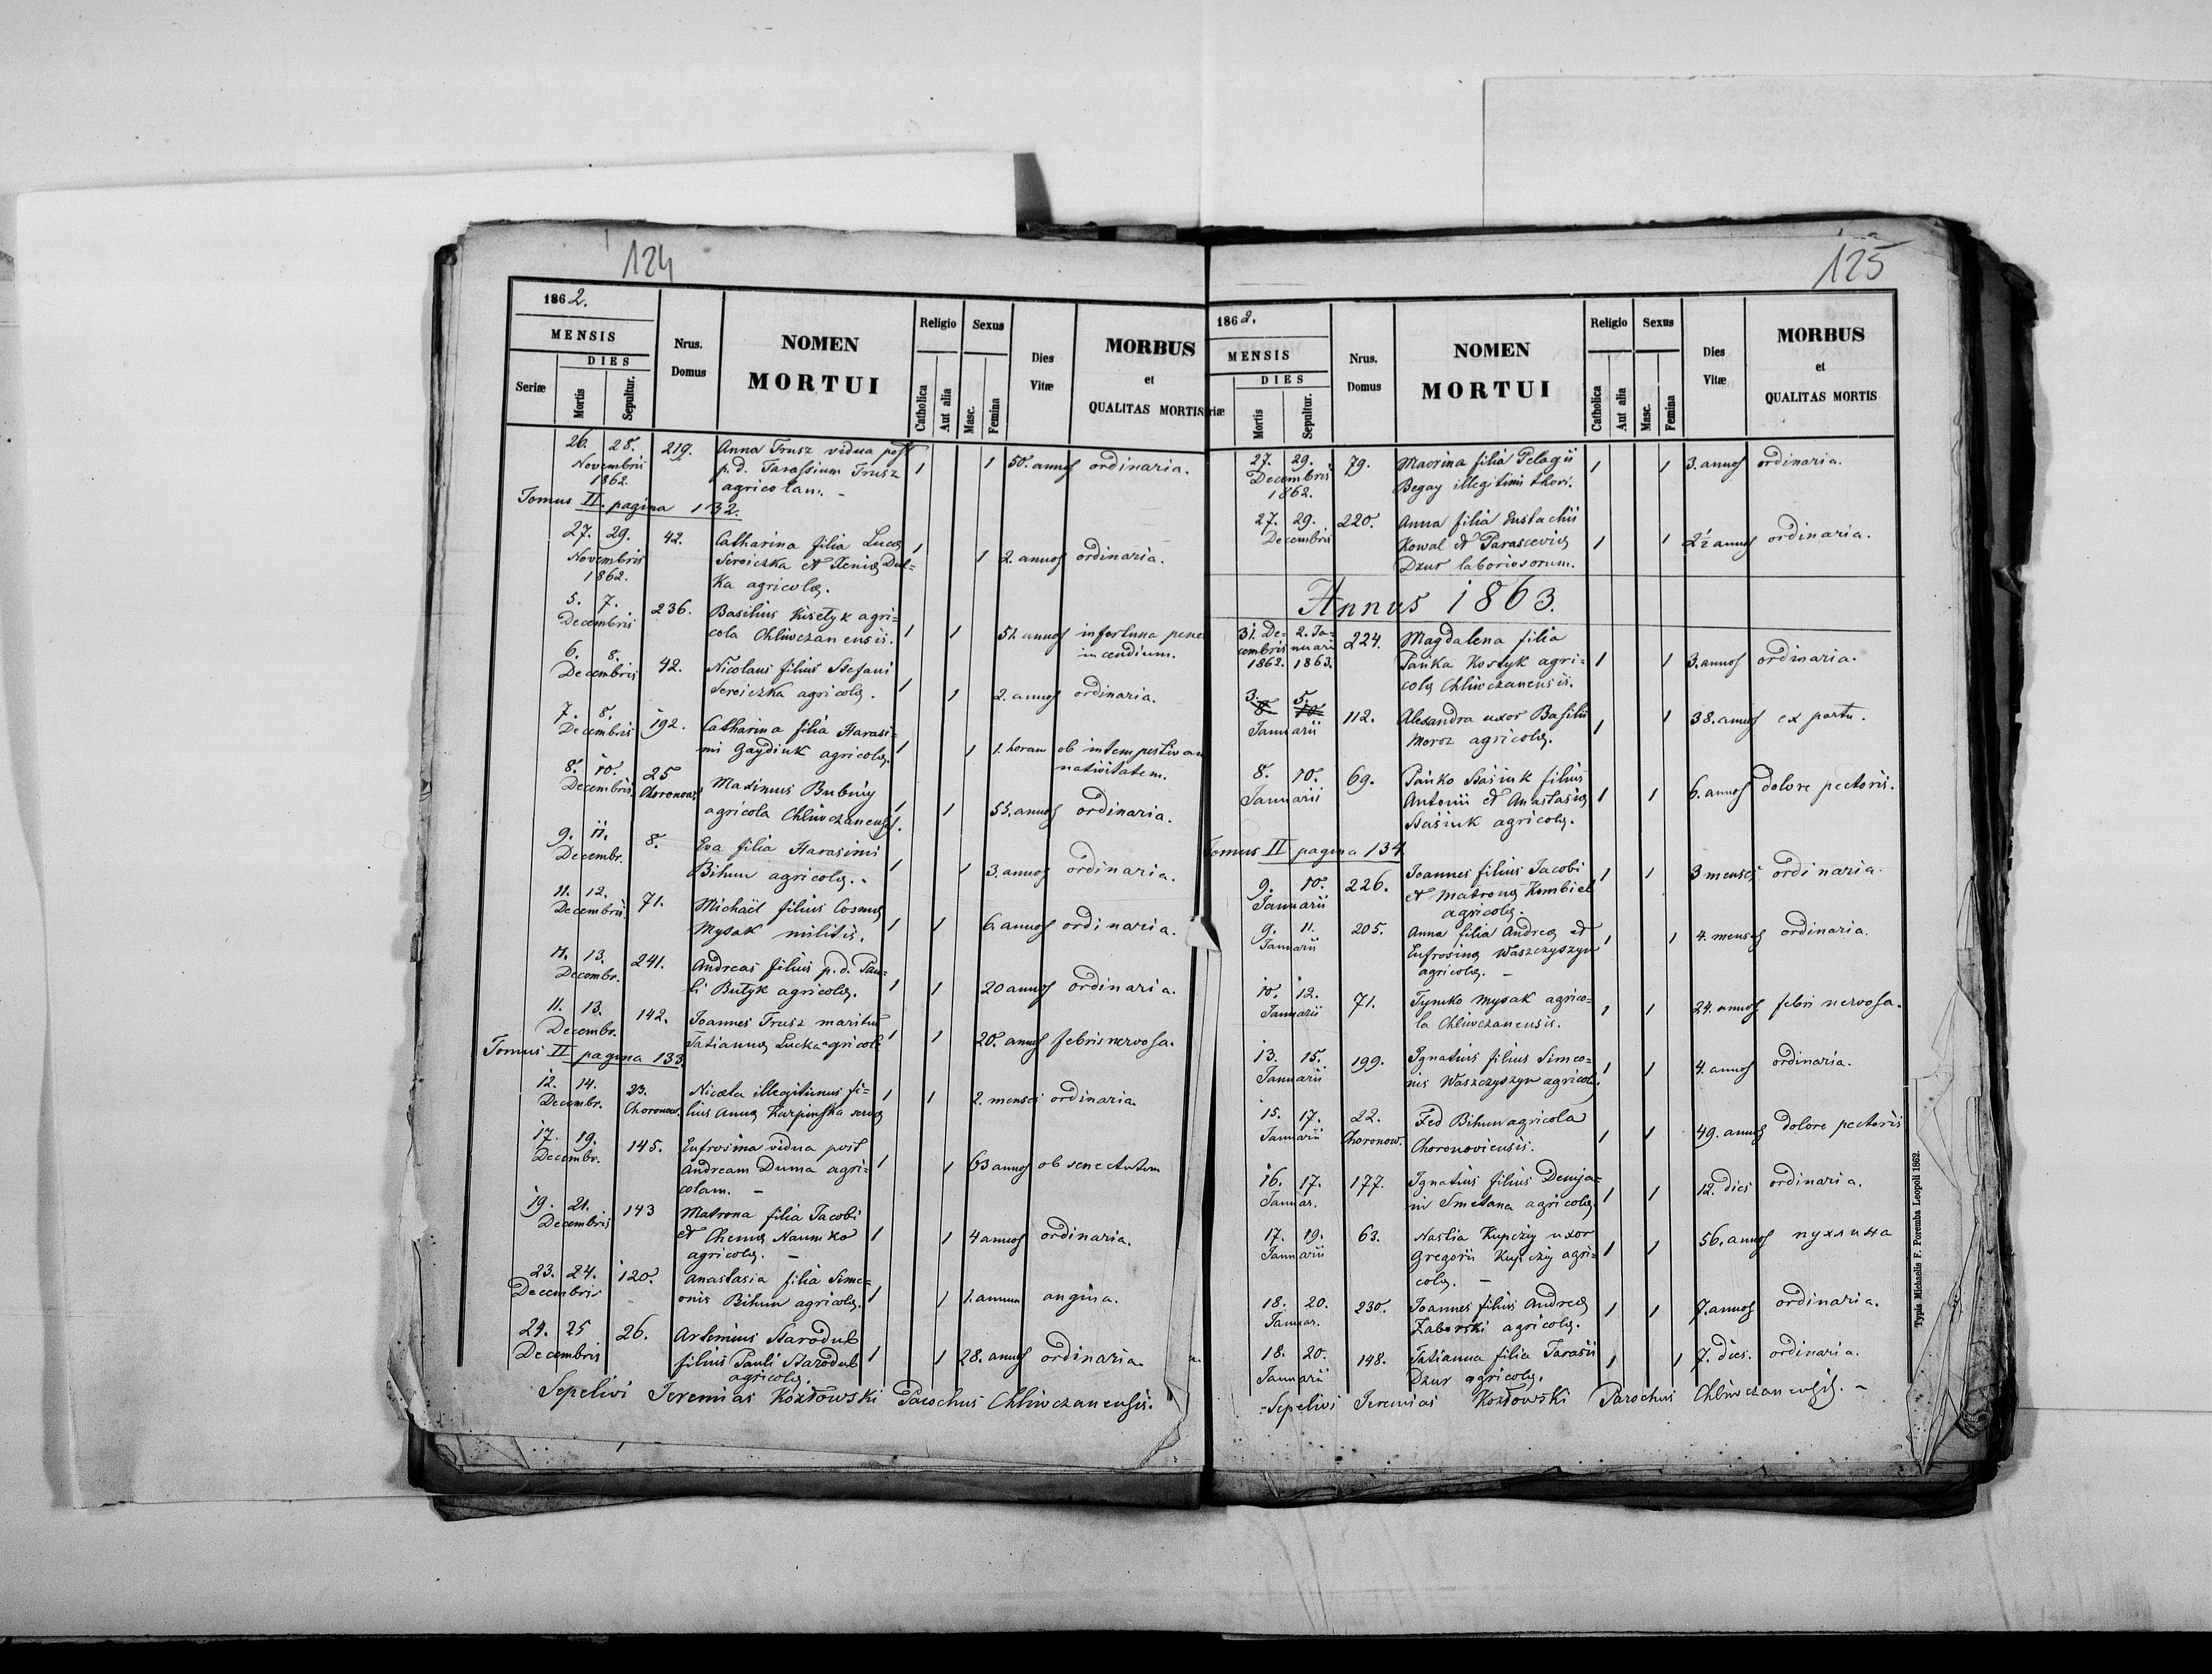 124
1862.
MENSIS
DIES
Seriæ
Mortis
Sepultur.
Nrus.
Domus
NOMEN
MORTUI
Religio
Catholica
Aut alia
Sexus
Masc.
Femina
Dies
Vitæ
MORBUS
et
QUALITAS MORTIS
26. 28. 219. Anna Trusz vidua post
Novembris p.d. Tarassium Trusz 1 1 50. annos ordinaria.
1862. agricolam. -
Tomus II. pagina 132.
27. 29. 42. Catharina filia Lucæ
Novembris Seroiczka et Xeniæ Dul= 1 1 2. annos ordinaria.
1862. ka agricolæ.
5. 7. 236. Basilius Kisetyk agri=
Decembris cola Chliwczanensis. 1 1 51. annos infortuna pene
incendium.
6. 8. 42. Nicolaus filius Stefani
Decembris Seroiczka agricolæ. 1 1 2. annos ordinaria.
7. 8. 192. Catharina filia Harasi=
Decembris mi Gaydiuk agricolæ. 1 1 1. horam ob intempestivam
nativitatem.
8. 10. 25 Maximus Bubniy
Decembris Choronow. agricola Chliwczanensis. 1 1 55. annos ordinaria.
9. 11. 8. Eva filia Harasimi
Decembr. Bihun agricolæ. 1 1 3. annos ordinaria.
11. 12. 71. Michaël filius Cosmæ
Decembris Mysak militis. 1 1 6. annos ordinaria.
11. 13. 241. Andreas filius p.d. Pau=
Decembr. li Butyk agricolæ. 1 1 20 annos ordinaria.
11. 13. 142. Joannes Trusz maritus
Decembr. Tatiannæ Lucka agricolæ 1 1 20. annos febris nervosa.
Tomus II pagina 133.
12. 14. 23. Niceta illegitimus fi=
Decembr. Choronow. lius Annæ Karpinska servæ 1 1 2. menses ordinaria.
17. 19. 145. Eufrosina vidua post
Decembr. Andream Duma agri= 1 1 63 annos ob senectutem
colam. -
19. 21. 143 Matrona filia Jacobi
Decembris et Chemæ Naumko 1 1 4 annos ordinaria.
agricolæ. -
23. 24. 120. Anastasia filia Sime=
Decembris onis Bihun agricolæ. 1 1 1. annum angina.
24. 25 26. Artemius Starodub
Decembris filius Pauli Starodub 1 1 28. annos ordinaria.
agricolæ.
Sepelivi Jeremias Kozłowski Parochus Chliwczanensis.
125
1862.
MENSIS
DIES
Mortis
Sepultur.
Nrus.
Domus
NOMEN
MORTUI
Religio
Catholica
Aut alia
Sexus
Masc.
Femina
Dies
Vitæ
MORBUS
et
QUALITAS MORTIS
27. 29. 79. Macrina filia Pelagii 1 1 3. annos ordinaria.
Decembris Begay illegitimi thori.
1862.
27. 29. 220. Anna filia Eustachii
Decembris Kowal et Parasceviæ 1 1 2½ annos ordinaria.
Dzur laboriosorum.
Annus 1863.
31. De= 2. Ja= 224. Magdalena filia
cembris nuarii Pańka Kostyk agri= 1 1 3. annos ordinaria.
1862. 1863. colæ Chliwczanensis.
3. 5.
8 10 112. Alexandra uxor Basilii 1 1 38. annos ex partu.
Januarii Moroz agricolæ.
8. 10. 69. Pańko Stasiuk filius
Januarii Antonii et Anastasiæ 1 1 6. annos dolore pectoris.
Stasiuk agricolæ.
Tomus II pagina 134.
9. 10. 226. Joannes filius Jacobi 1 1 3 menses ordinaria.
Januarii et Matronæ Kmbiel
agricolæ.
9. 11. 205. Anna filia Andreæ et 1 1 4. menses ordinaria.
Januarii Eufrosinæ Waszczyszyn
agricolæ. -
10. 12. 71. Tymko Mysak agrico= 1 1 24. annos febri nervosa.
Januarii la Chliwczanensis.
13. 15. 199. Ignatius filius Simeo= 1 1 4. annos ordinaria.
Januarii nis Waszczyszyn agricolæ.
15. 17. 22. Fed Bihun agricola 1 1 49. annos dolore pectoris
Januarii Choronow. Choronoviensis.
16. 17. 177. Ignatius filius Demja= 1 1 12. dies ordinaria.
Januar. ni Smetana agricolæ.
17. 19. 63. Nastia Kupczy uxor
Januarii Gregorii Kupczy agri= 1 1 56. annos пухлина
colæ. -
18. 20. 230. Joannes filius Andreæ 1 1 7. annos ordinaria.
Januar. Zaborski agricolæ.
18. 20. 148. Tatianna filia Tarasii 1 1 7. dies. ordinaria.
Januarii Dzur agricolæ.
Sepelivi Jeremias Kozłowski Parochus Chliwczanensis. -
Typis Michaelis F. Poremba Leopoli 1862.